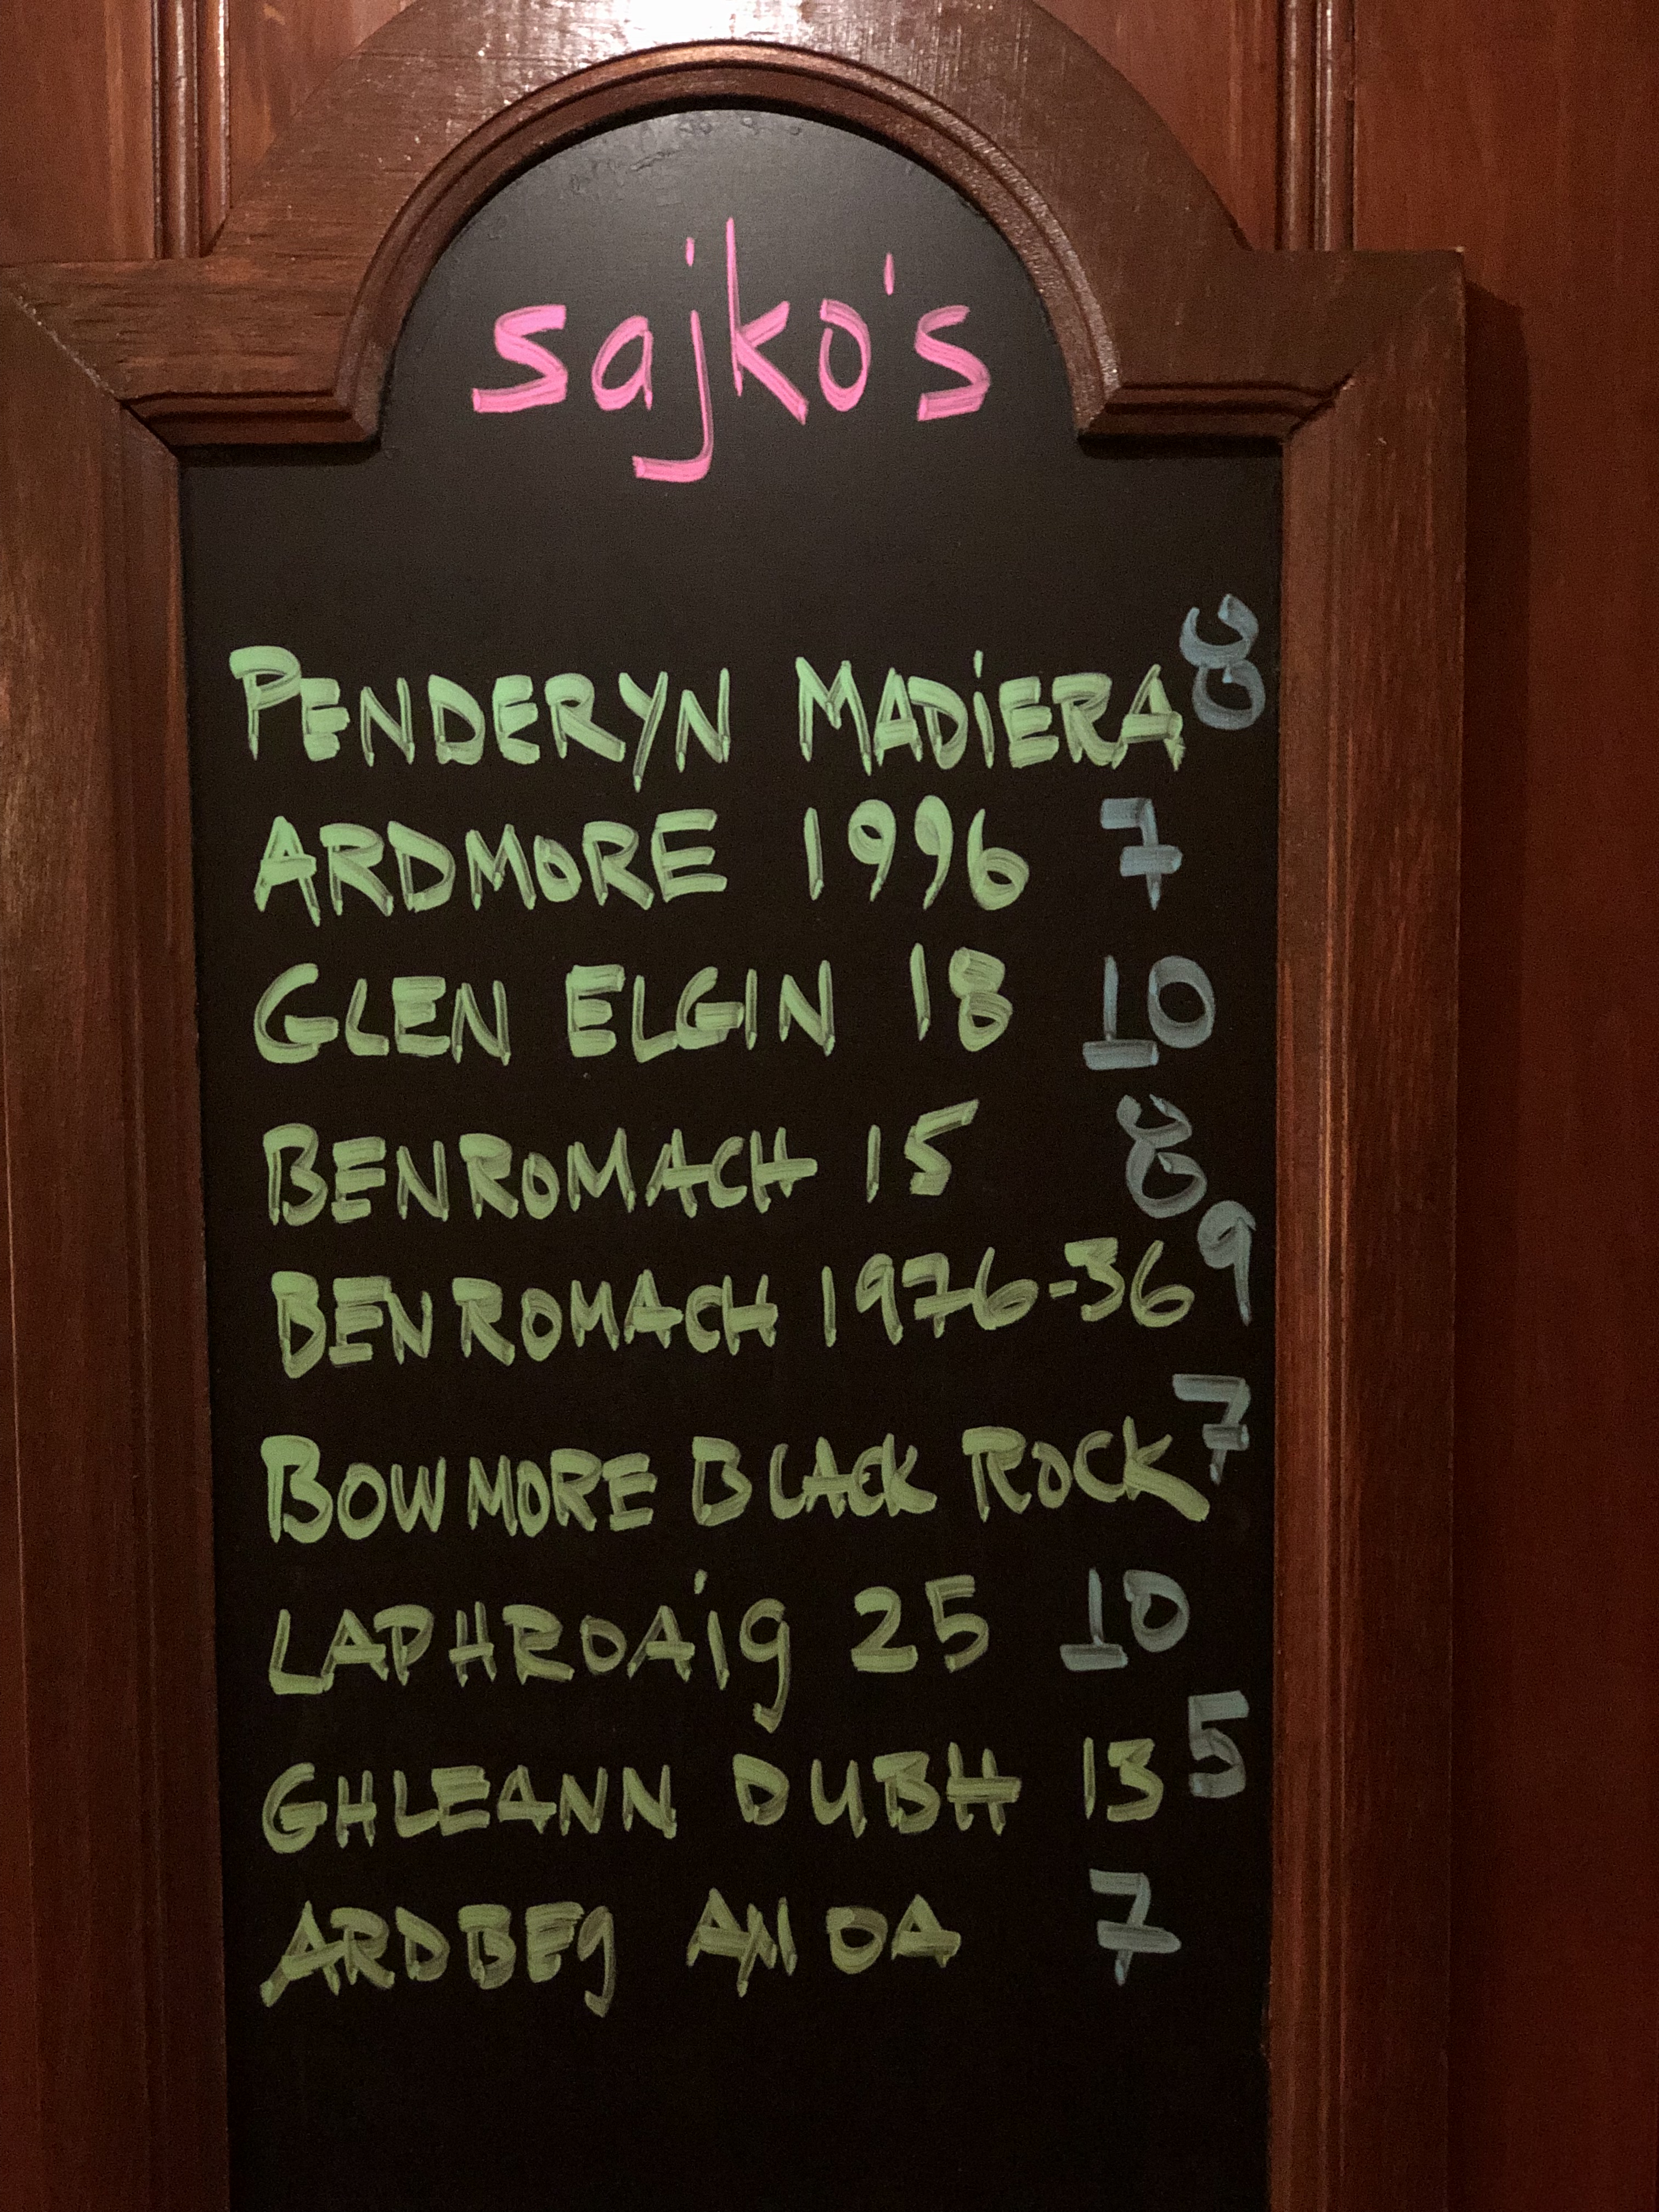 sajko's
PENDERYN MADiERA 8
ARDMORE 1996 7
GLEN ELGIN 18 10
BENROMACH 15 8
BENROMACH 1976-36 9
BOWMORE BLACK ROCK 7
LAPHROAig 25 10
GHLEANN DUBH 13 5
ARDBEg AN OA 7